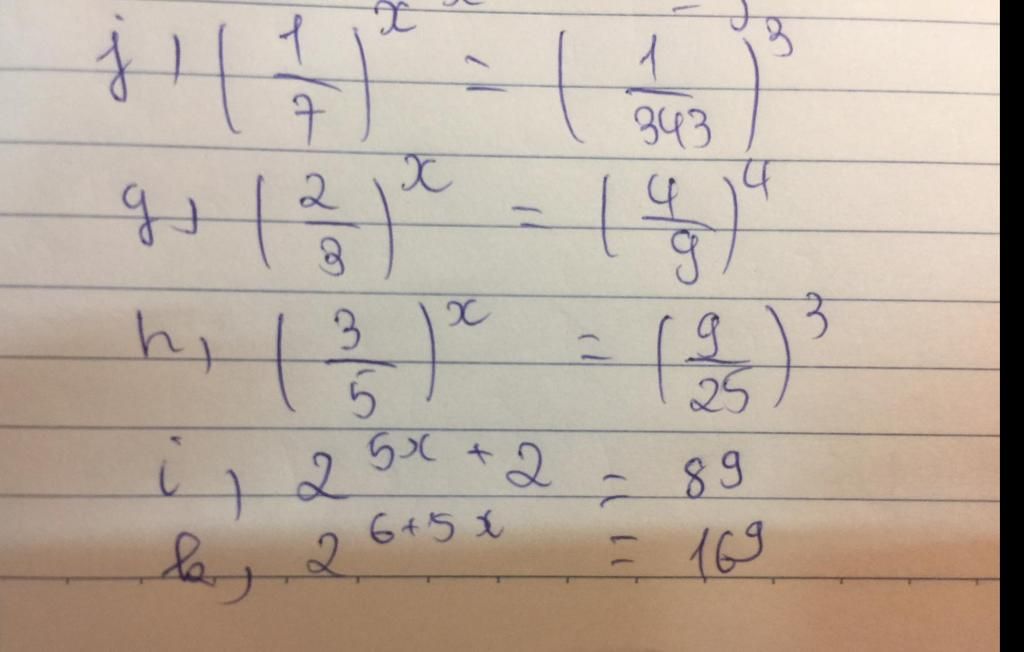 j, (1/7)^x = (1/343)^3
g, (2/3)^x = (4/9)^4
h, (3/5)^x = (9/25)^3
i, 2^(5x+2) = 8^9
k, 2^(6+5x) = 16^9